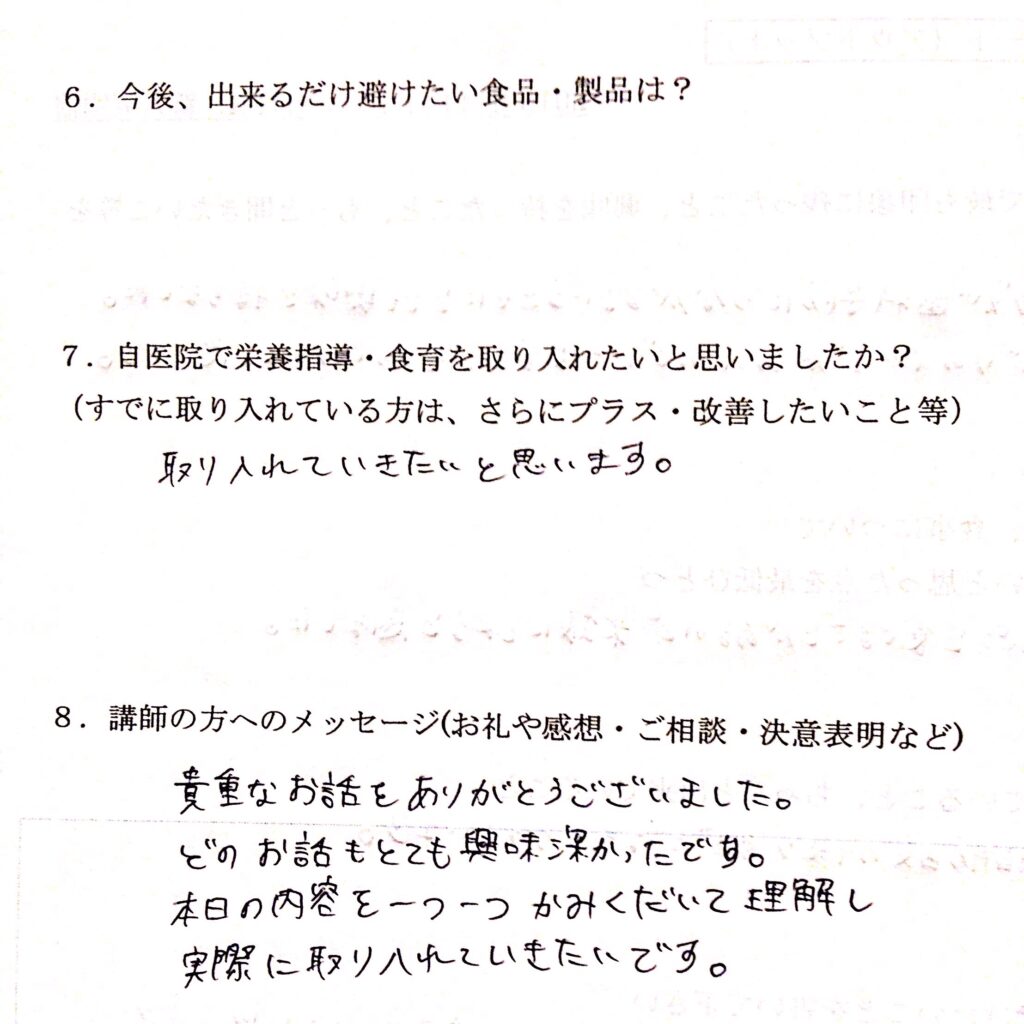 6．今後、出来るだけ避けたい食品・製品は？
7．自医院で栄養指導・食育を取り入れたいと思いましたか？
（すでに取り入れている方は、さらにプラス・改善したいこと等）
取り入れていきたいと思います。
8．講師の方へのメッセージ(お礼や感想・ご相談・決意表明など)
貴重なお話をありがとうございました。
どのお話もとても興味深かったです。
本日の内容を一つ一つかみくだいて理解し
実際に取り入れていきたいです。